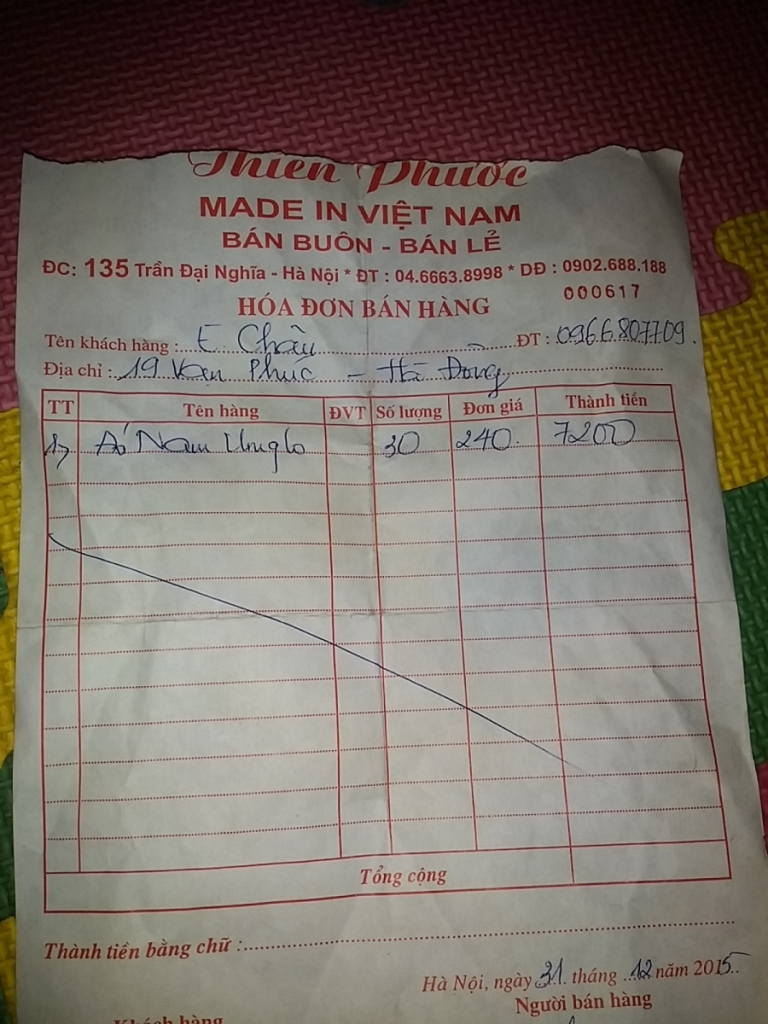 Thiên Phước
MADE IN VIỆT NAM
BÁN BUÔN - BÁN LẺ
ĐC: 135 Trần Đại Nghĩa - Hà Nội * ĐT : 04.6663.8998 * DĐ : 0902.688.188
HÓA ĐƠN BÁN HÀNG 000617
Tên khách hàng : E Châu ĐT : 0966.807709.
Địa chỉ : 19 Vạn Phúc - Hà Đông
TT Tên hàng ĐVT Số lượng Đơn giá Thành tiền
1, Áo Nam Uniqlo 30 240. 7200
Tổng cộng
Thành tiền bằng chữ :
Hà Nội, ngày 31 tháng 12 năm 2015
Người bán hàng
Khách hàng